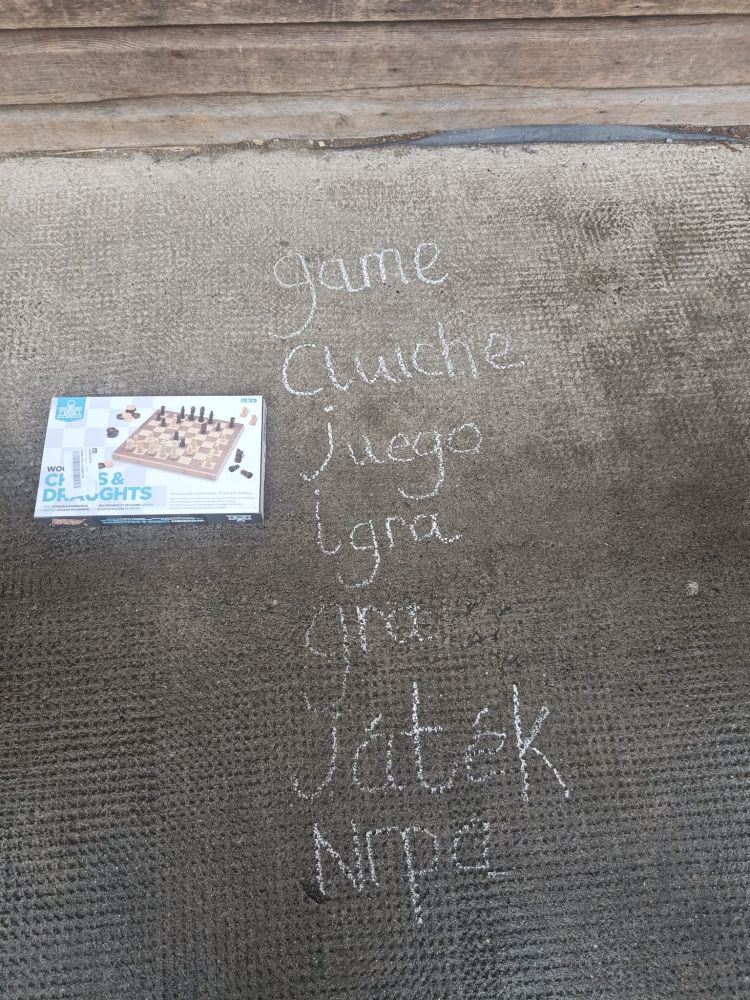 game
cluiche
juego
igra
gra
játék
Игра
& 
DRAUGHTS